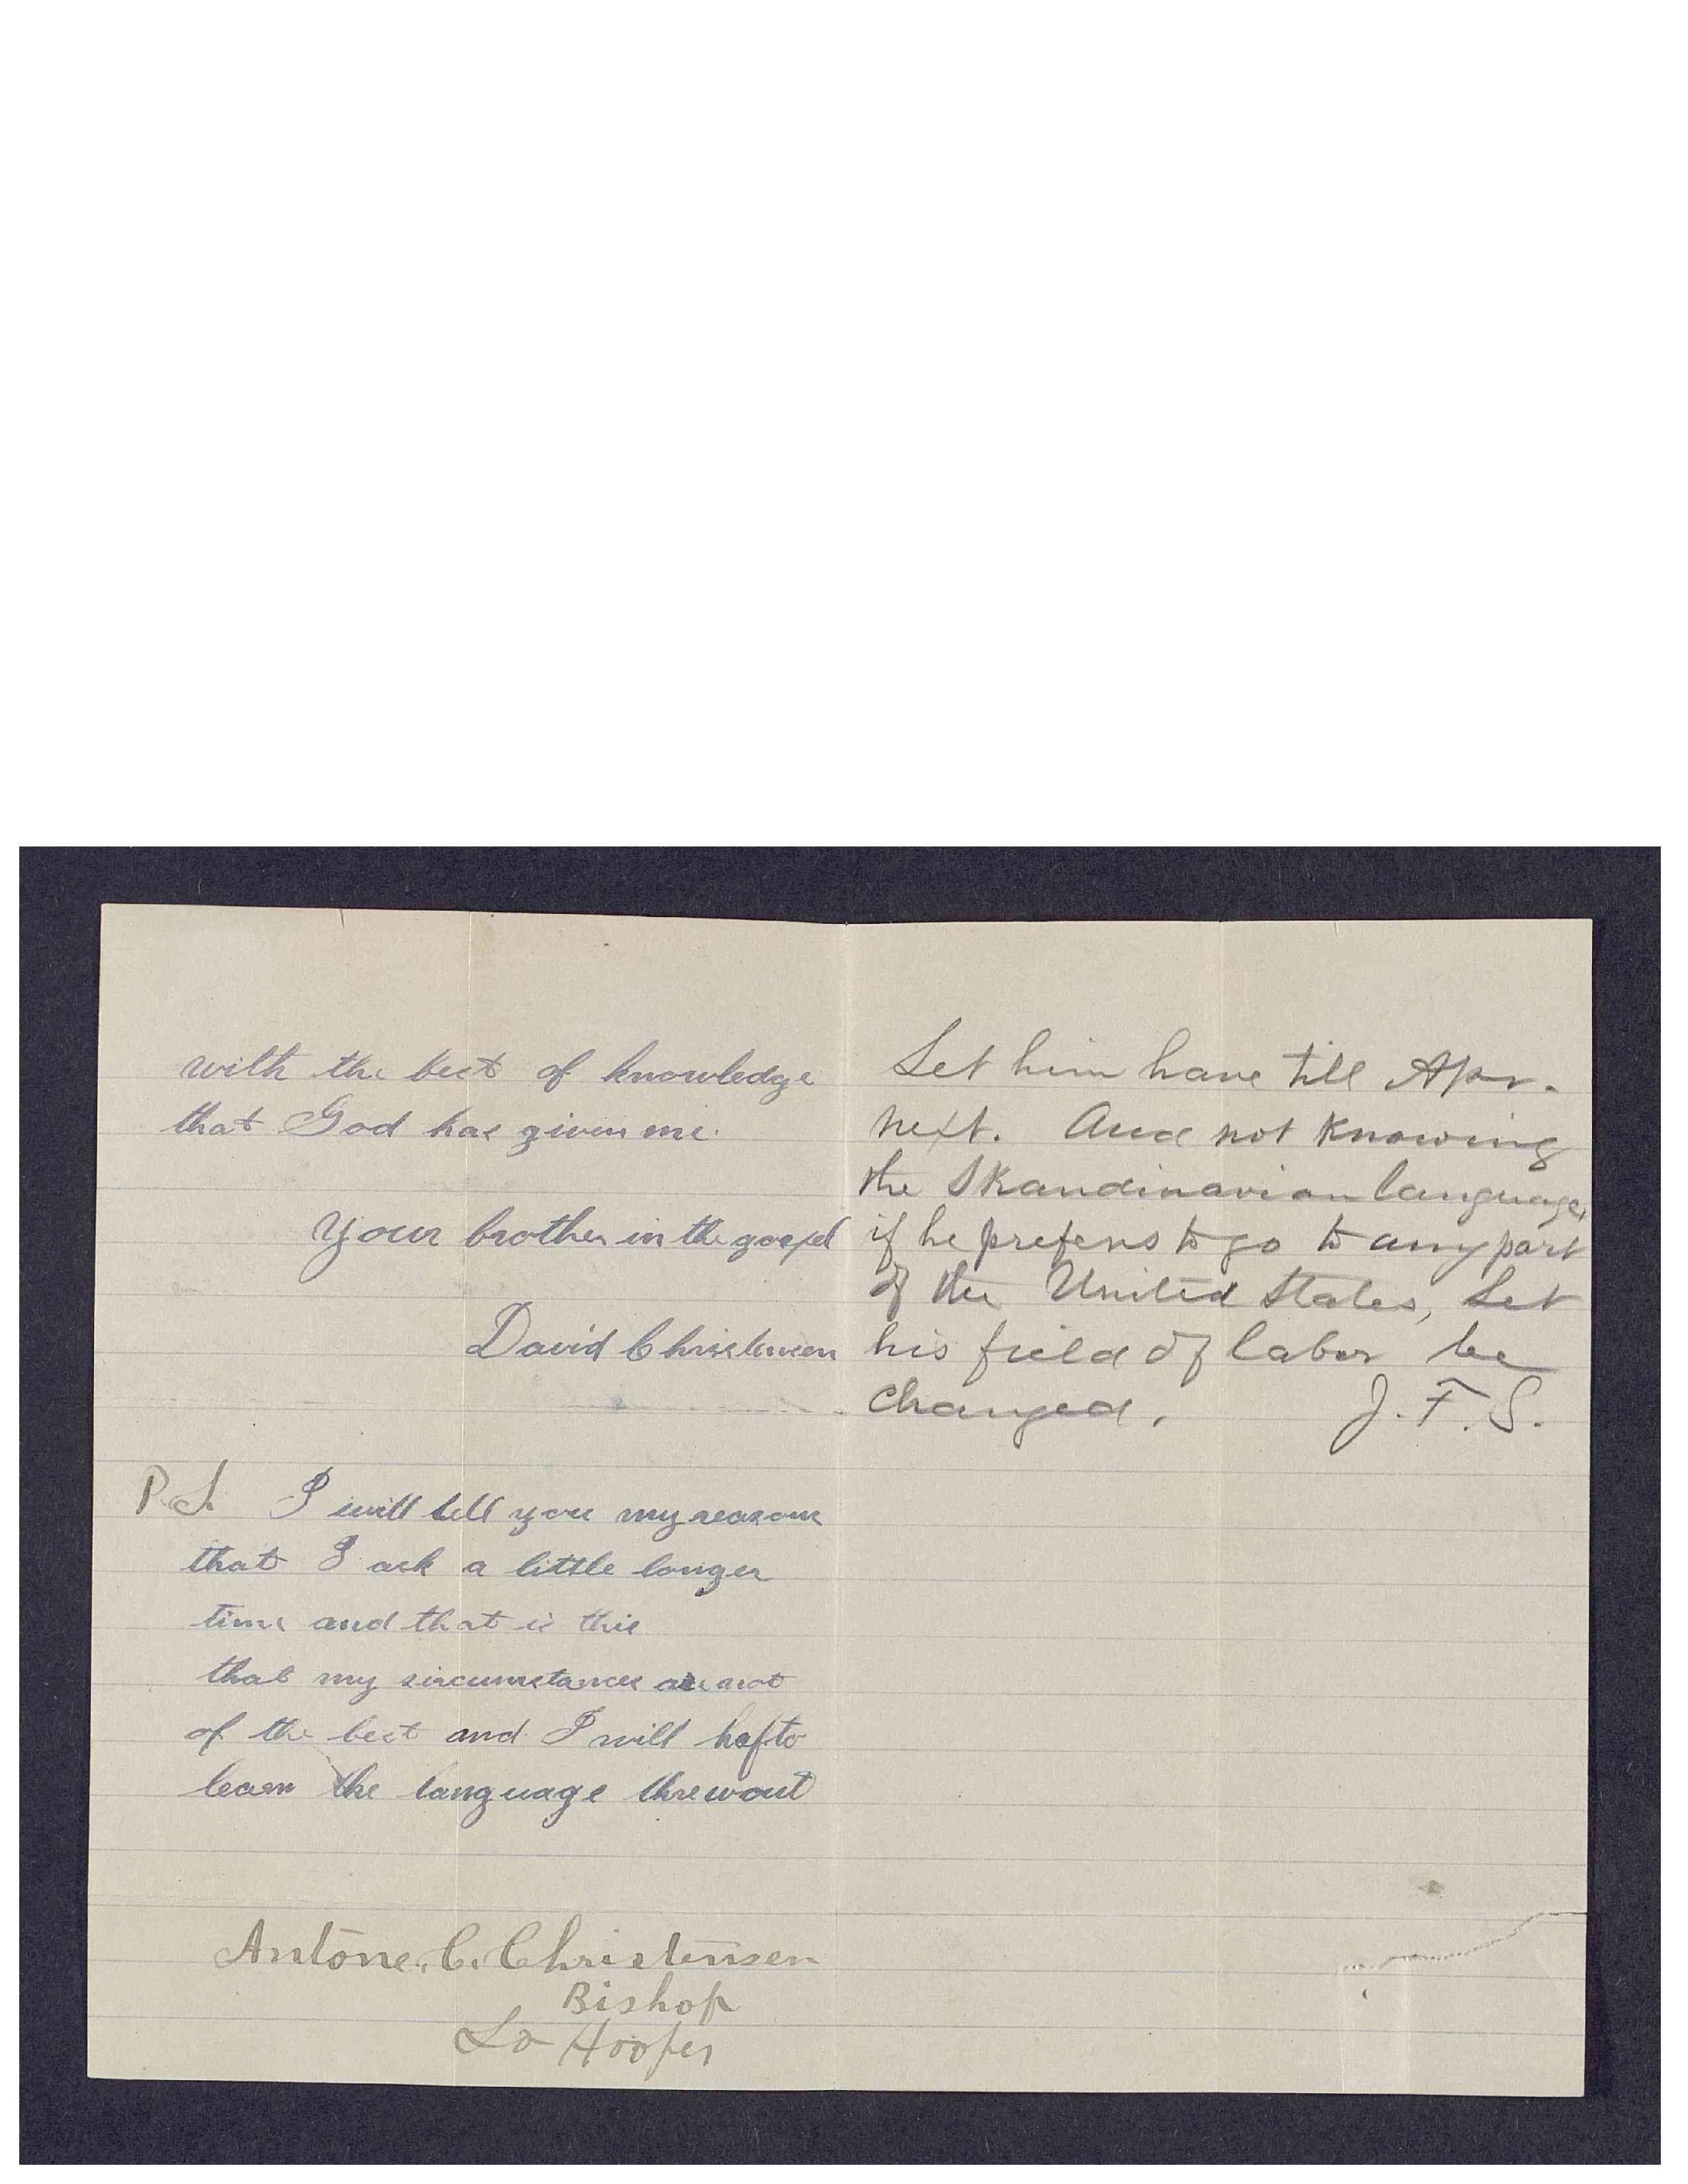 with the best of knowledge
that God has given me.
Your brother in the gospel
David Christensen
P.S. I will tell you my reasons
that I ask a little longer
time and that is this
that my sircumstances are not
of the best and I will hafto
learn the language threwout
Antone. C. Christensen
Bishop
So Hooper
Let him have till Apr.
next. And not knowing
the Skandinavian language,
if he prefers to go to any part
of the United States, Let
his field of labor be
changed. J. F. S.